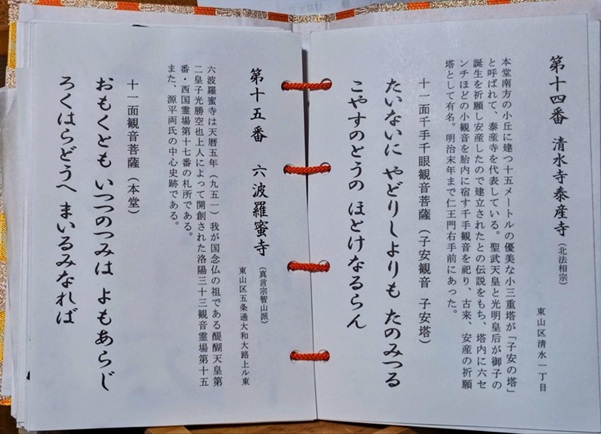 第十四番　清水寺泰産寺（北法相宗）
東山区清水一丁目
本堂南方の小丘に建つ十五メートルの優美な小三重塔が「子安の塔」
と呼ばれて、泰産寺を代表している。聖武天皇と光明皇后が御子の
誕生を祈願し安産したので建立されたとの伝説をもち、塔内に六セ
ンチほどの小観音を胎内に宿す千手観音を祀り、古来、安産の祈願
塔として有名。明治末年まで仁王門右手前にあった。
十一面千手千眼観音菩薩（子安観音　子安塔）
たいないに　やどりしよりも　たのみつる
こやすのとうの　ほとけなるらん
第十五番　六波羅蜜寺（真言宗智山派）
東山区五条通大和大路上ル東
六波羅蜜寺は天暦五年（九五一）我が国念仏の祖である醍醐天皇第
二皇子光勝空也上人によって開創された洛陽三十三観音霊場第十五
番・西国霊場第十七番の札所である。
また、源平両氏の中心史跡である。
十一面観音菩薩（本堂）
おもくとも　いつつのつみは　よもあらじ
ろくはらどうへ　まいるみなれば